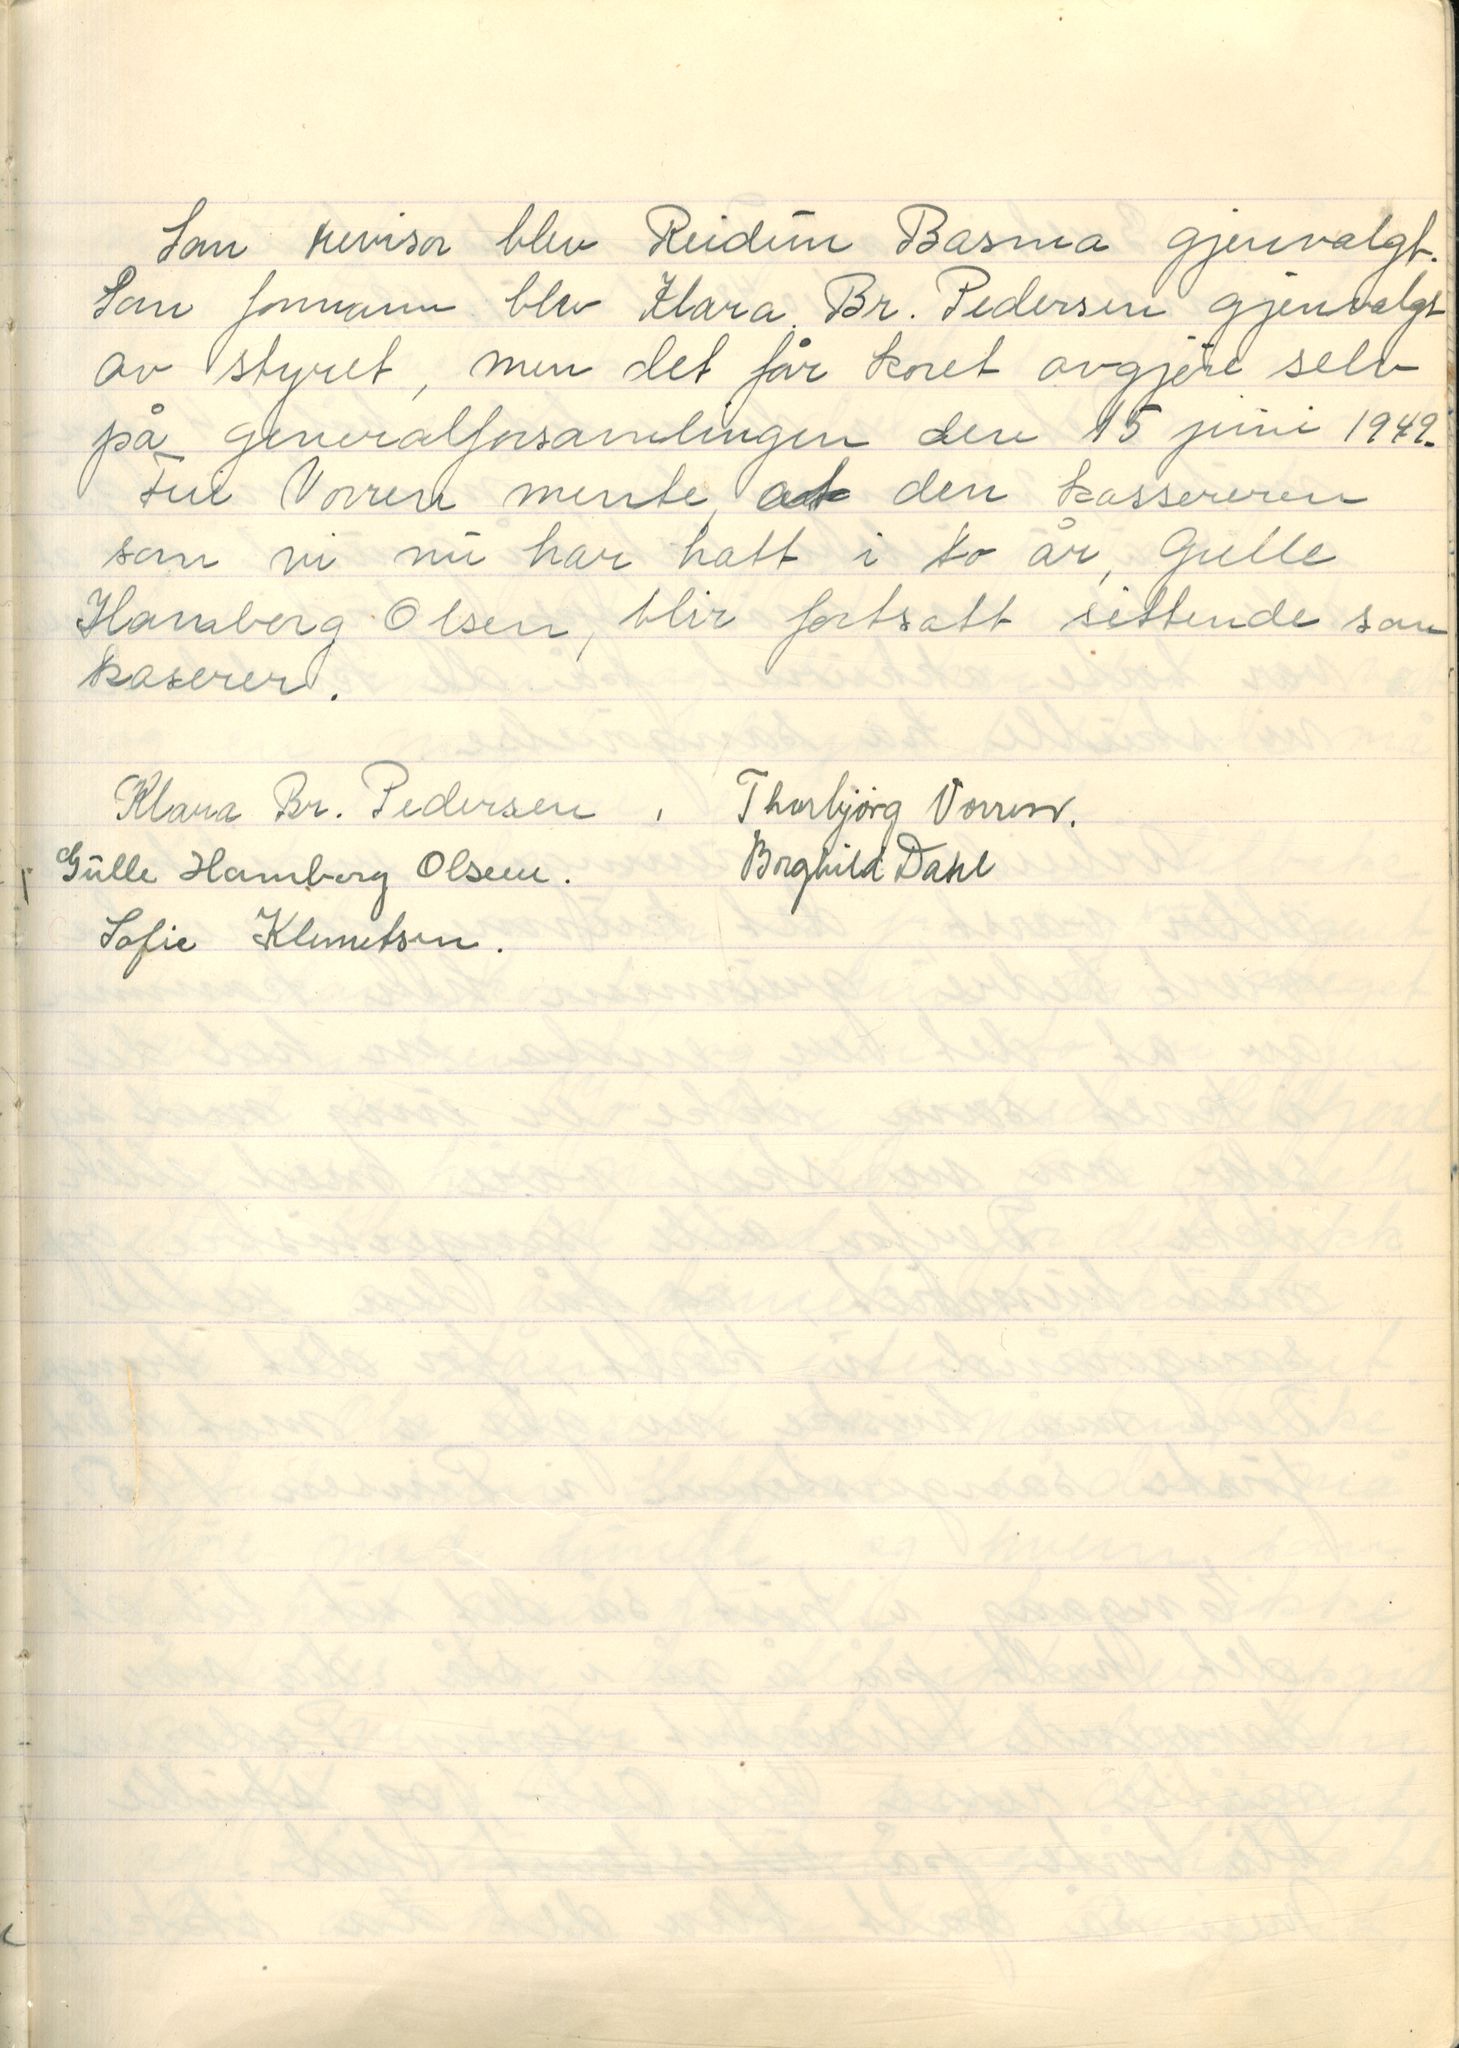 Som revisor blev Reidun Basma gjenvalgt.
Som formann blev Klara Br. Pedersen gjenvalgt
av styret, men det får koret avgjøre selv
på generalforsamlingen den 15 juni 1949.
Fru Vorren mente, at den kassereren
som vi nu har hatt i to år, Gulle
Hamborg Olsen, blir fortsatt sittende som
kaserer.
Klara Br. Pedersen, Thorbjörg Vorren.
Gulle Hamborg Olsen. Borghild Dahl
Sofie Klemetsen.